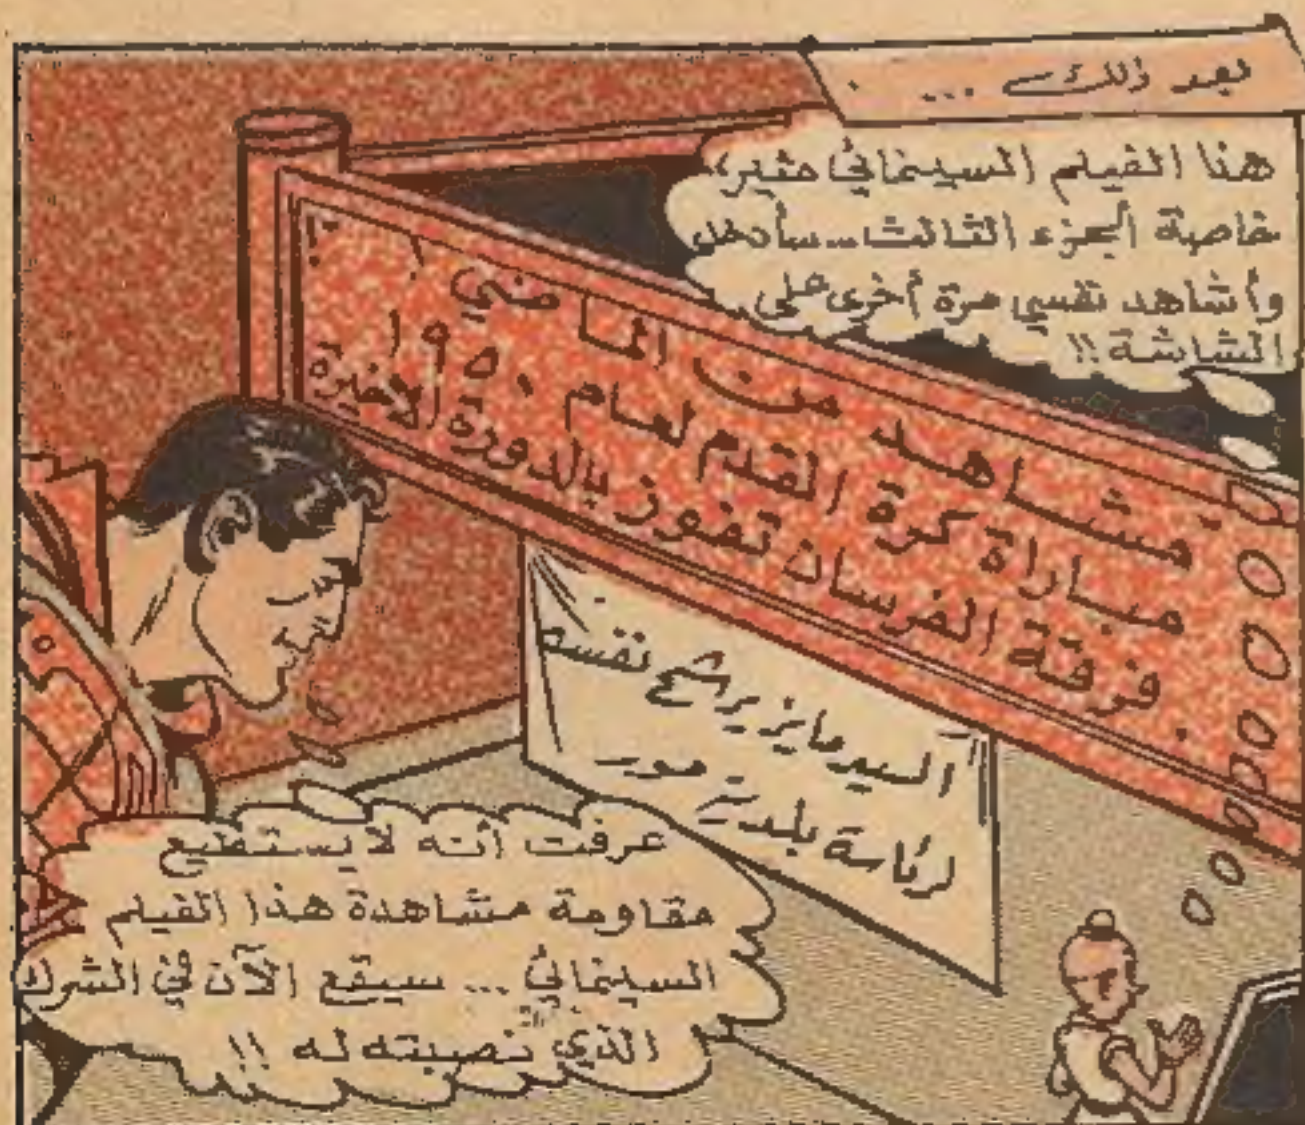 بعد ذلك ...
هذا الفيلم السينمائي مثير،
خاصة الجزء الثالث ... سأدخل
وأشاهد نفسي مرة أخرى على
الشاشة !!
مشاهد من الماضي !
مباراة كرة القدم لعام ١٩٥٠
فرقة الفرسان تفوز بالدورة الأخيرة
السيد مايز يرشح نفسه
لرئاسة بلدية مور
عرفت أنه لا يستطيع
مقاومة مشاهدة هذا الفيلم
السينمائي ... سيقع الآن في الشرك
الذي نصبته له !!